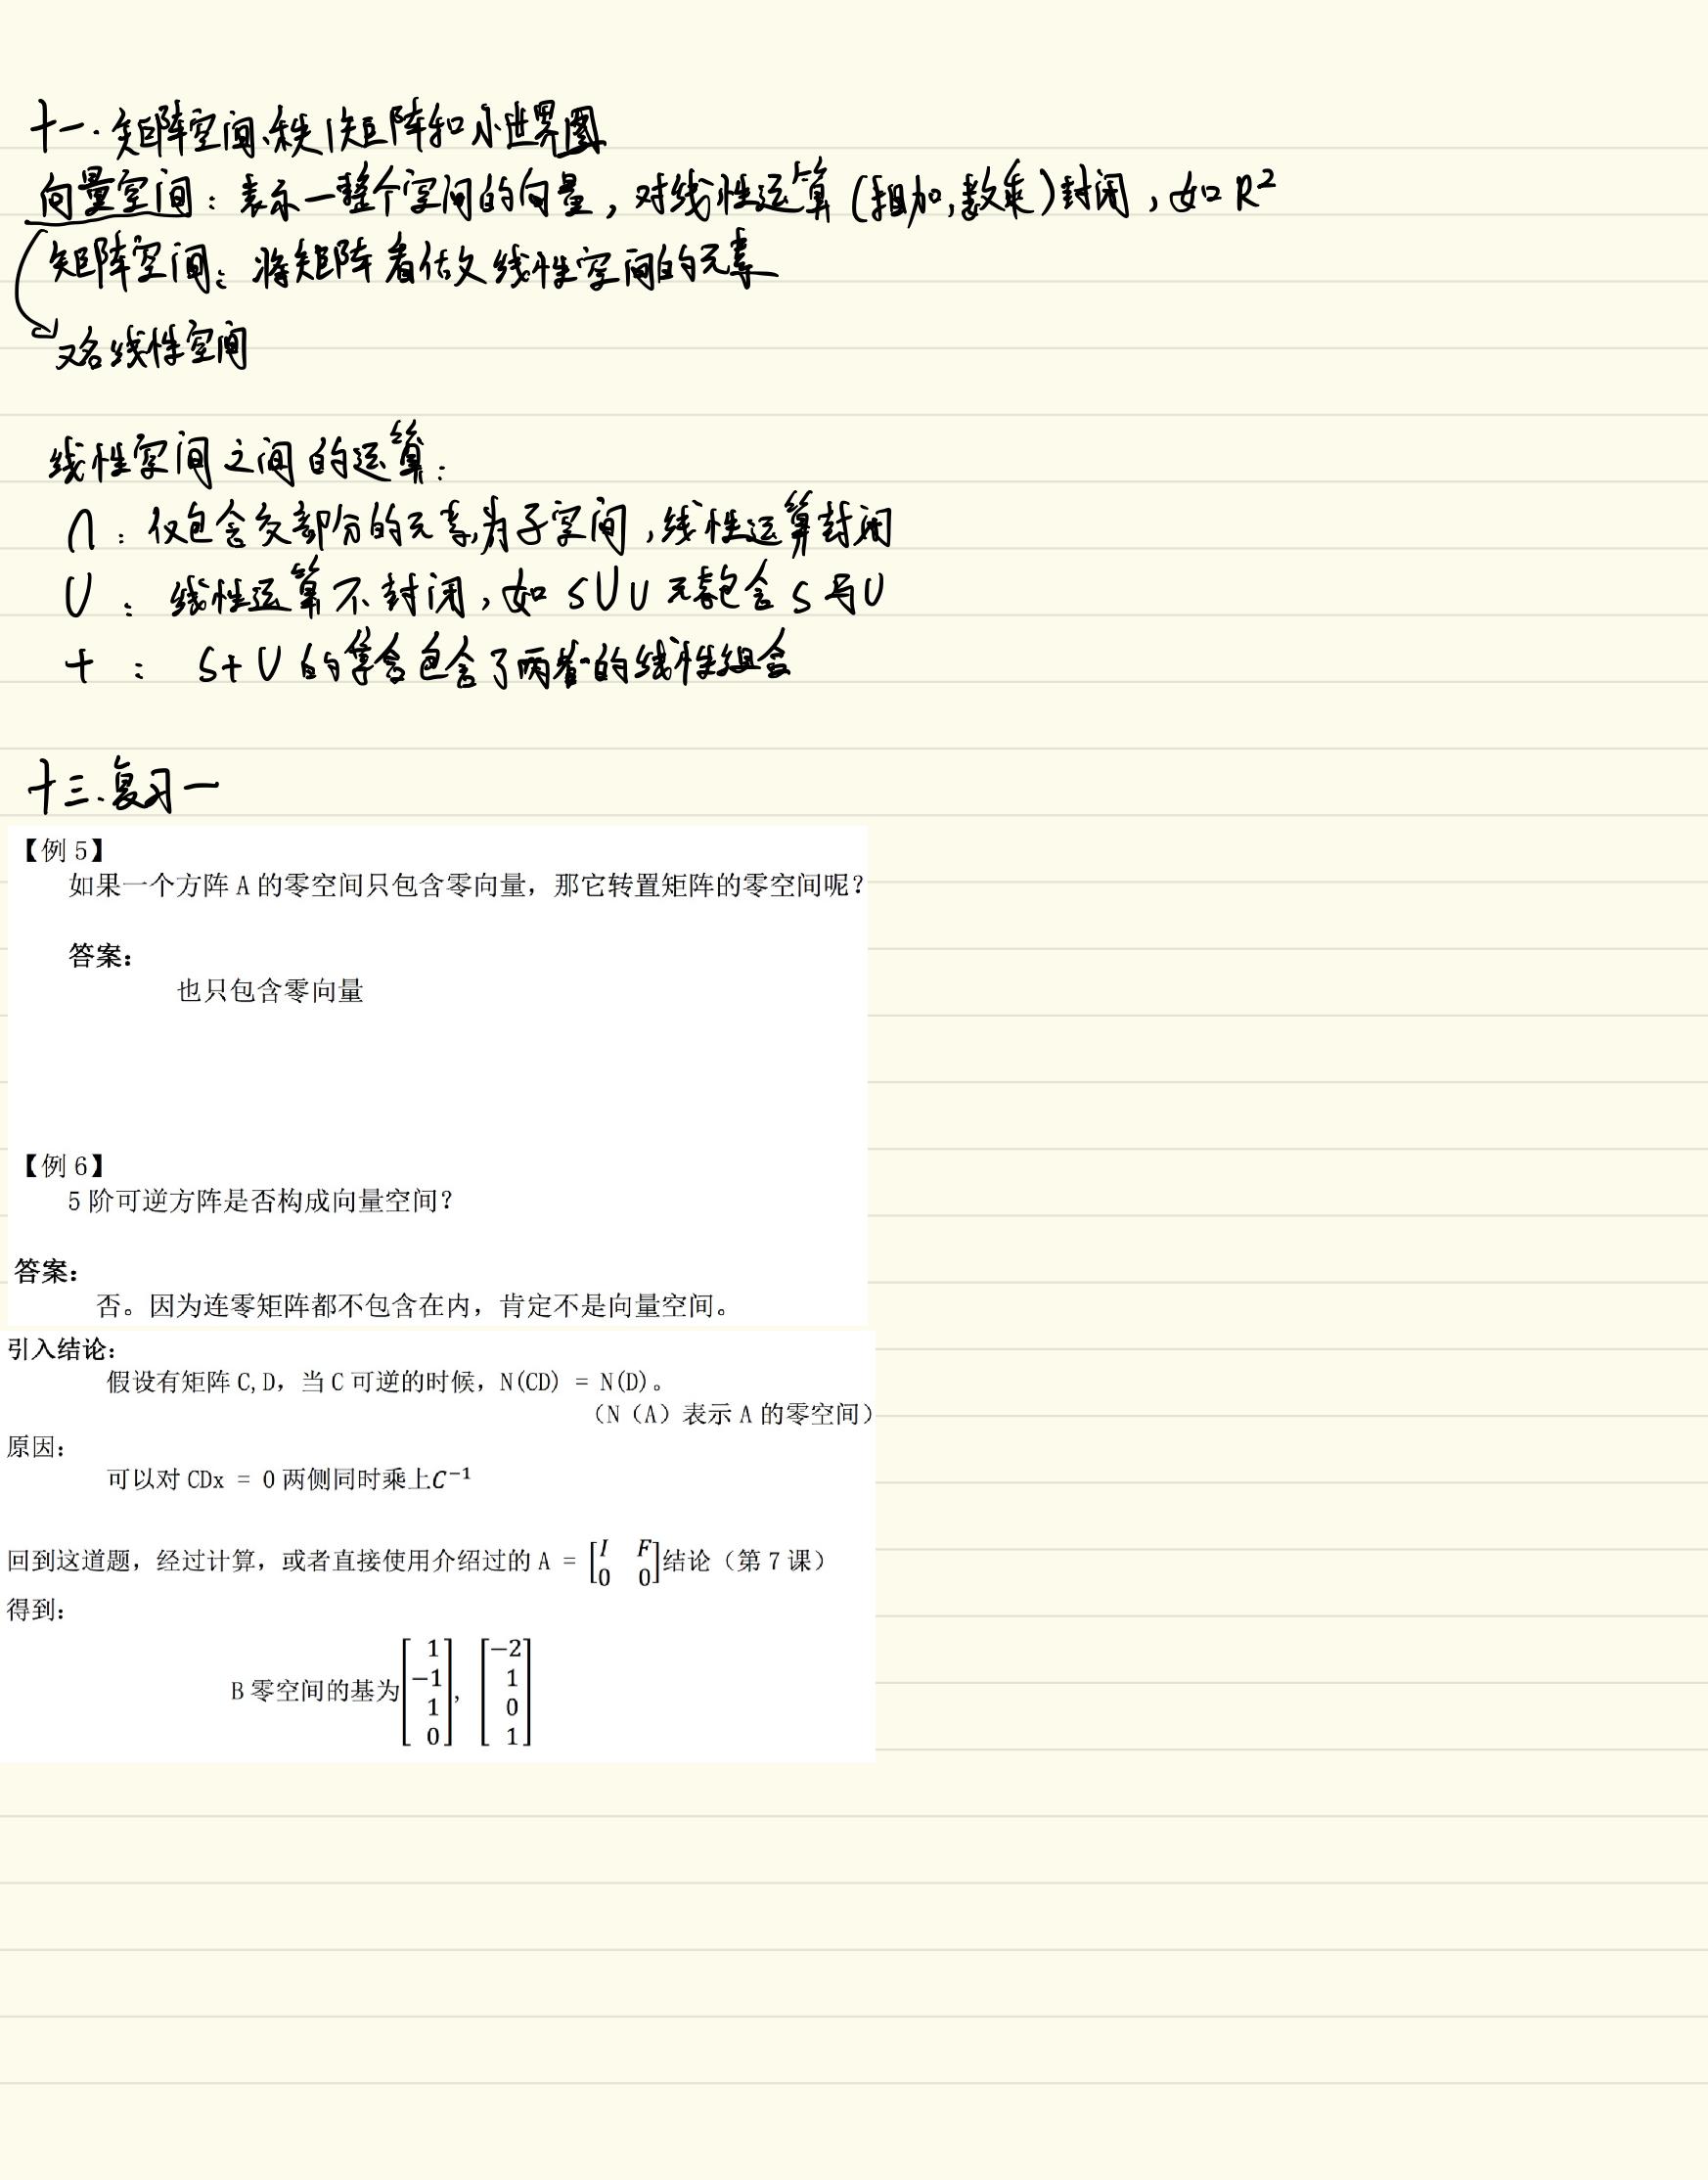 十一.矩阵空间、秩1矩阵和小世界图
向量空间：表示一整个空间的向量，对线性运算(相加,数乘)封闭，如R²
矩阵空间：将矩阵看作线性空间的元素
又名线性空间
线性空间之间的运算：
∩：仅包含交部分的元素,为子空间,线性运算封闭
∪：线性运算不封闭，如S∪U元素包含S与U
+：S+U的集合包含了两者的线性组合
十三.复习一
【例 5】
如果一个方阵 A 的零空间只包含零向量，那它转置矩阵的零空间呢？
答案：
也只包含零向量
【例 6】
5 阶可逆方阵是否构成向量空间？
答案：
否。因为连零矩阵都不包含在内，肯定不是向量空间。
引入结论：
假设有矩阵 C,D，当 C 可逆的时候，N(CD) = N(D)。
（N（A）表示 A 的零空间）
原因：
可以对 CDx = 0 两侧同时乘上C⁻¹
回到这道题，经过计算，或者直接使用介绍过的 A = [I F; 0 0]结论（第 7 课）
得到：
B 零空间的基为[1; -1; 1; 0], [-2; 1; 0; 1]